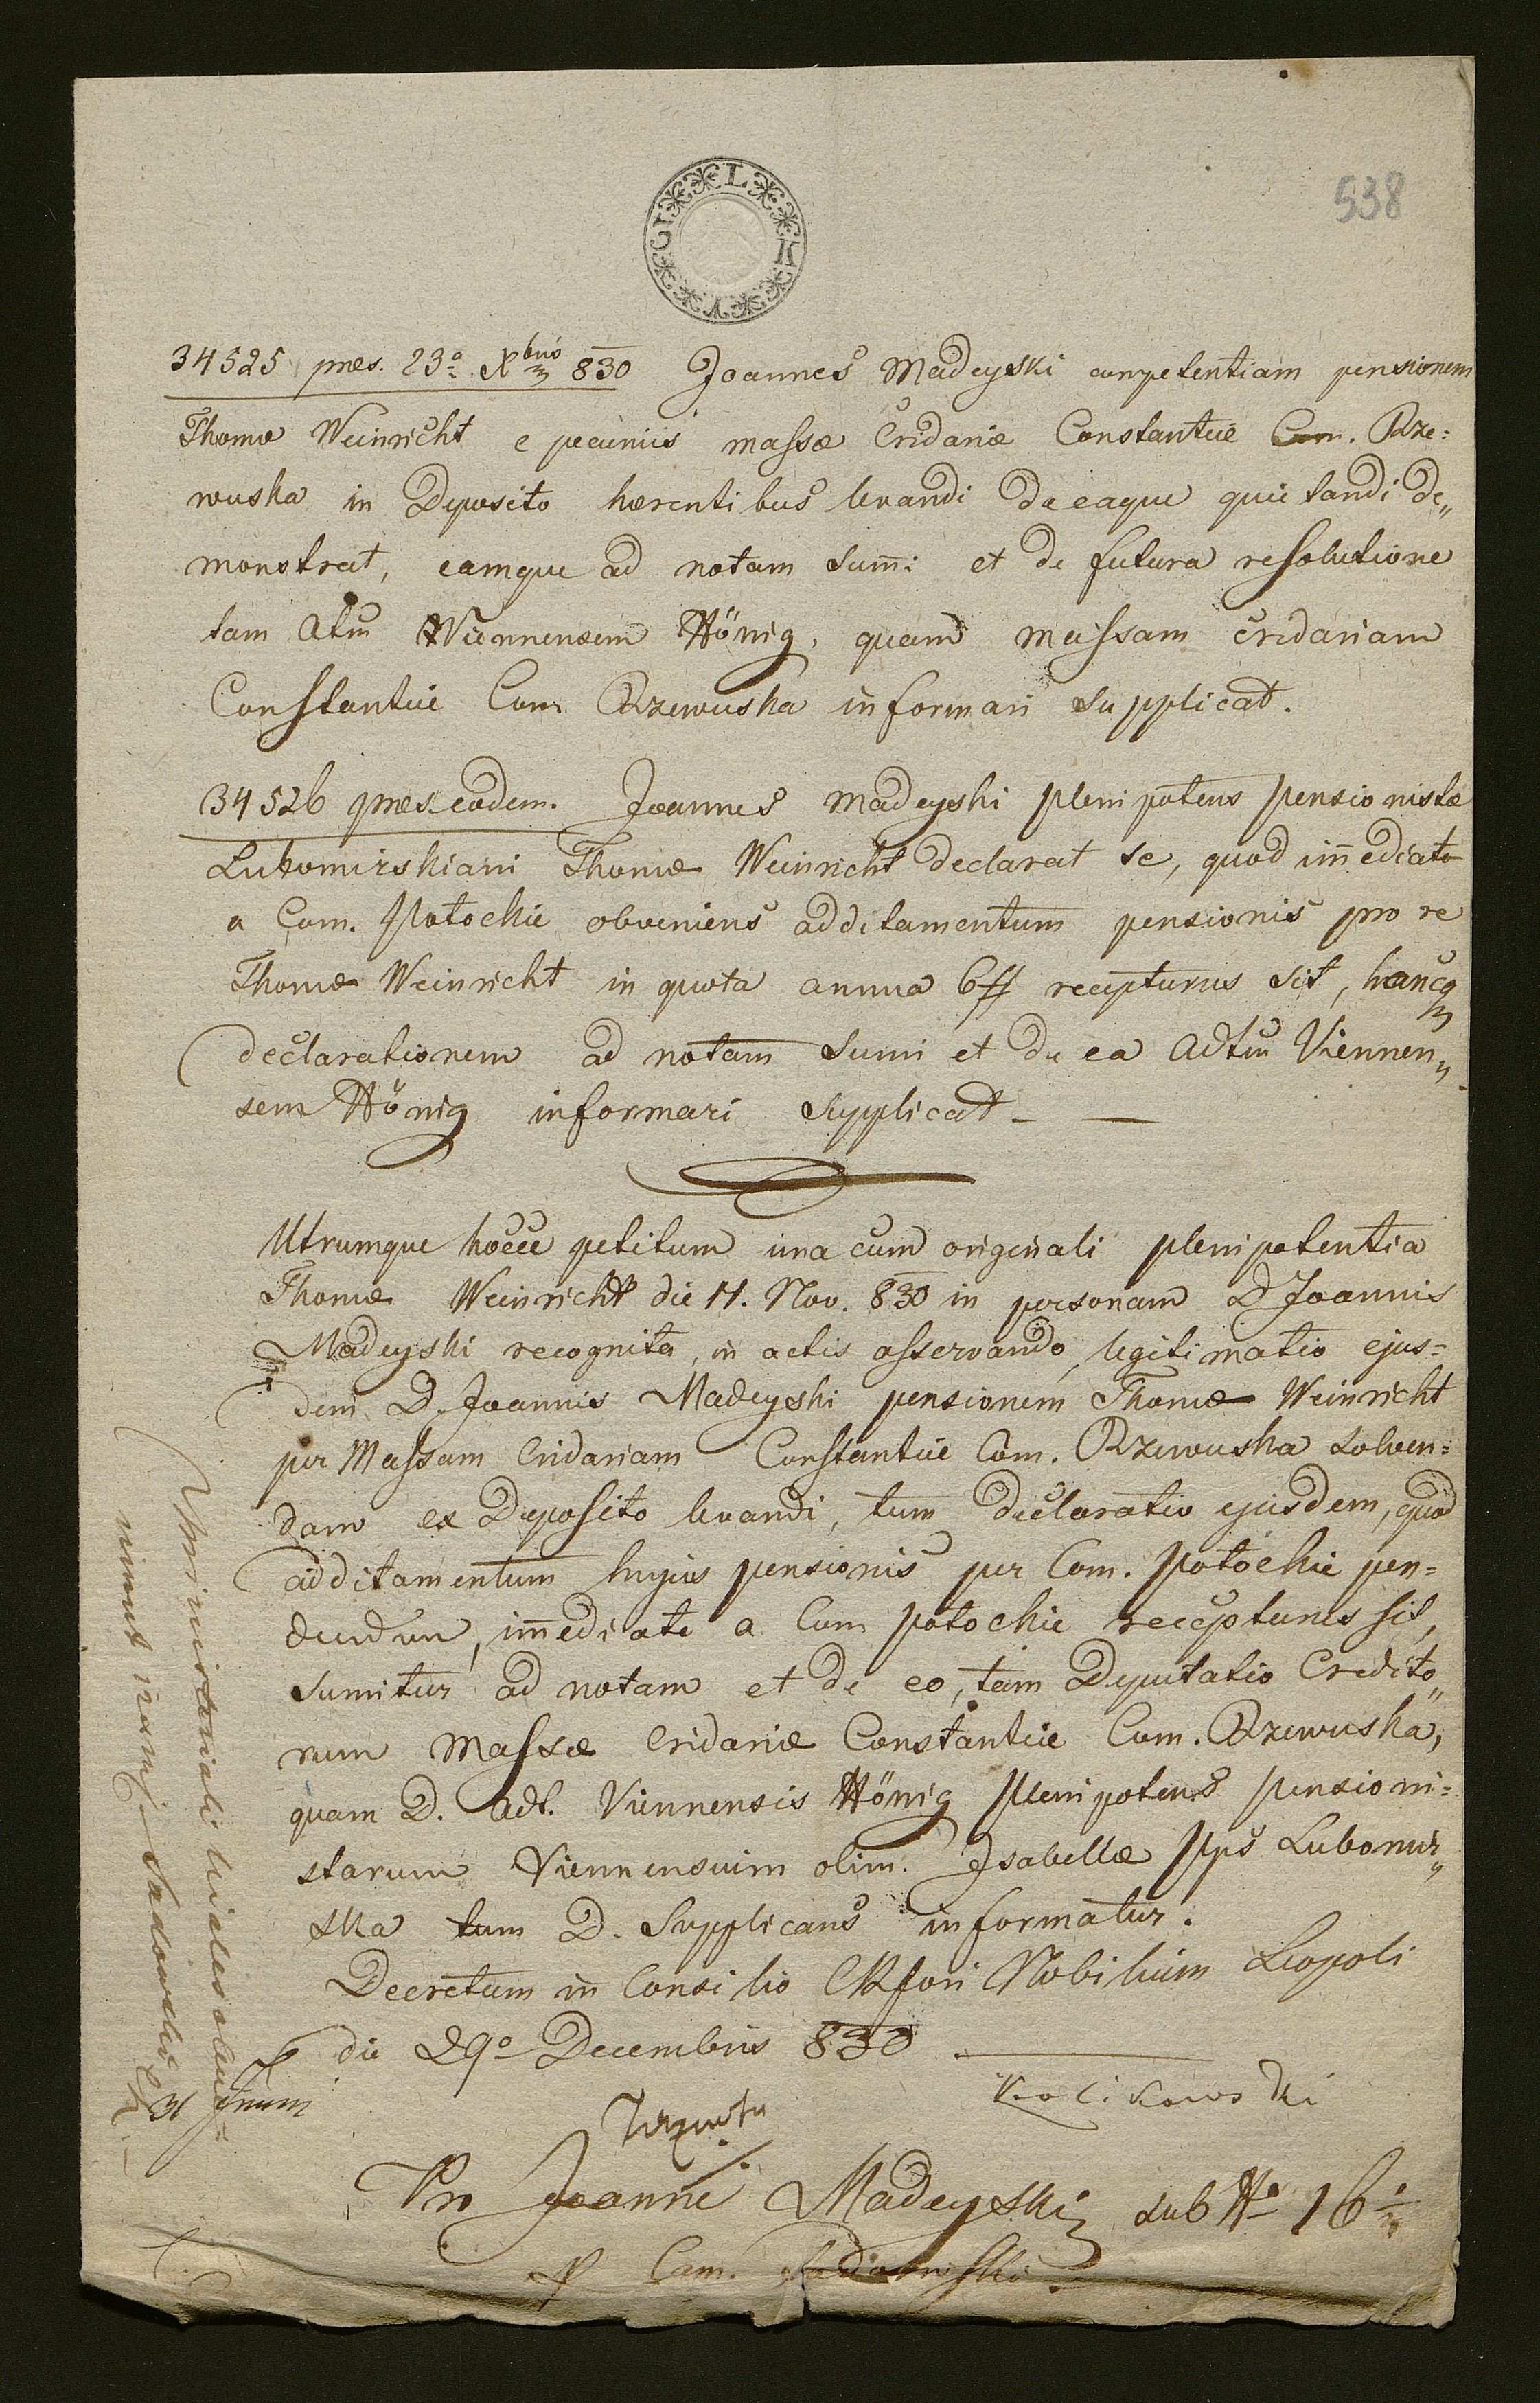 538
L K V G I
34525 præs. 23º Xbris 830 Joannes Madeyski competentiam pensionem
Thomæ Weinricht e pecuniis massæ Cridariæ Constantiæ Com. Rze=
wuska in Deposito hærentibus levandi de eaque quietandi de„
monstrat, eamque ad notam sum̄i et de futura resolutione
tam Adtm Viennensem Hönig, quam massam cridariam
Constantiæ Com. Rzewuska informari supplicat.
34526 præs eodem. Joannes Madeyski plenipotens Pensionistæ
Lubomirskiani Thomæ Weinricht declarat se, quod im̄ediate
a Com. Potockie obveniens additamentum pensionis pro re
Thomæ Weinricht in quota annua 6 # recepturus sit, hancq
declarationem ad notam sumi et de ea Adtm Viennen„
sem Hönig informari supplicat —
Utrumque hocce petitum una cum originali plenipotentia
Thomæ Weinricht die 11. Nov. 830 in personam D Joannis
Madeyski recognita, in actis asservando, legitimatio ejus=
dem D. Joannis Madeyski pensionem Thomæ Weinricht
per Massam Cridariam Constantiæ Com. Rzewuska solven=
dam ex Deposito levandi, tum declaratio ejusdem, quod
additamentum hujus pensionis per Com. Potockie pen=
dendum, im̄ediate a Com Potockie recepturus sit,
sumitur ad notam et de eo, tam Deputatio Credito„
rum Massæ Cridariæ Constantiæ Com. Rzewuska,
quam D. Adt. Viennensis Hönig plenipotens pensioni=
starum Viennensium olim. Isabellæ Pps Lubomir„
ska tum D. Supplicans informatur.
Decretum in Consilio CRfori Nobilium Leopoli
die 29º Decembris 830
Pro Joanne Madeyski sub Nº 16